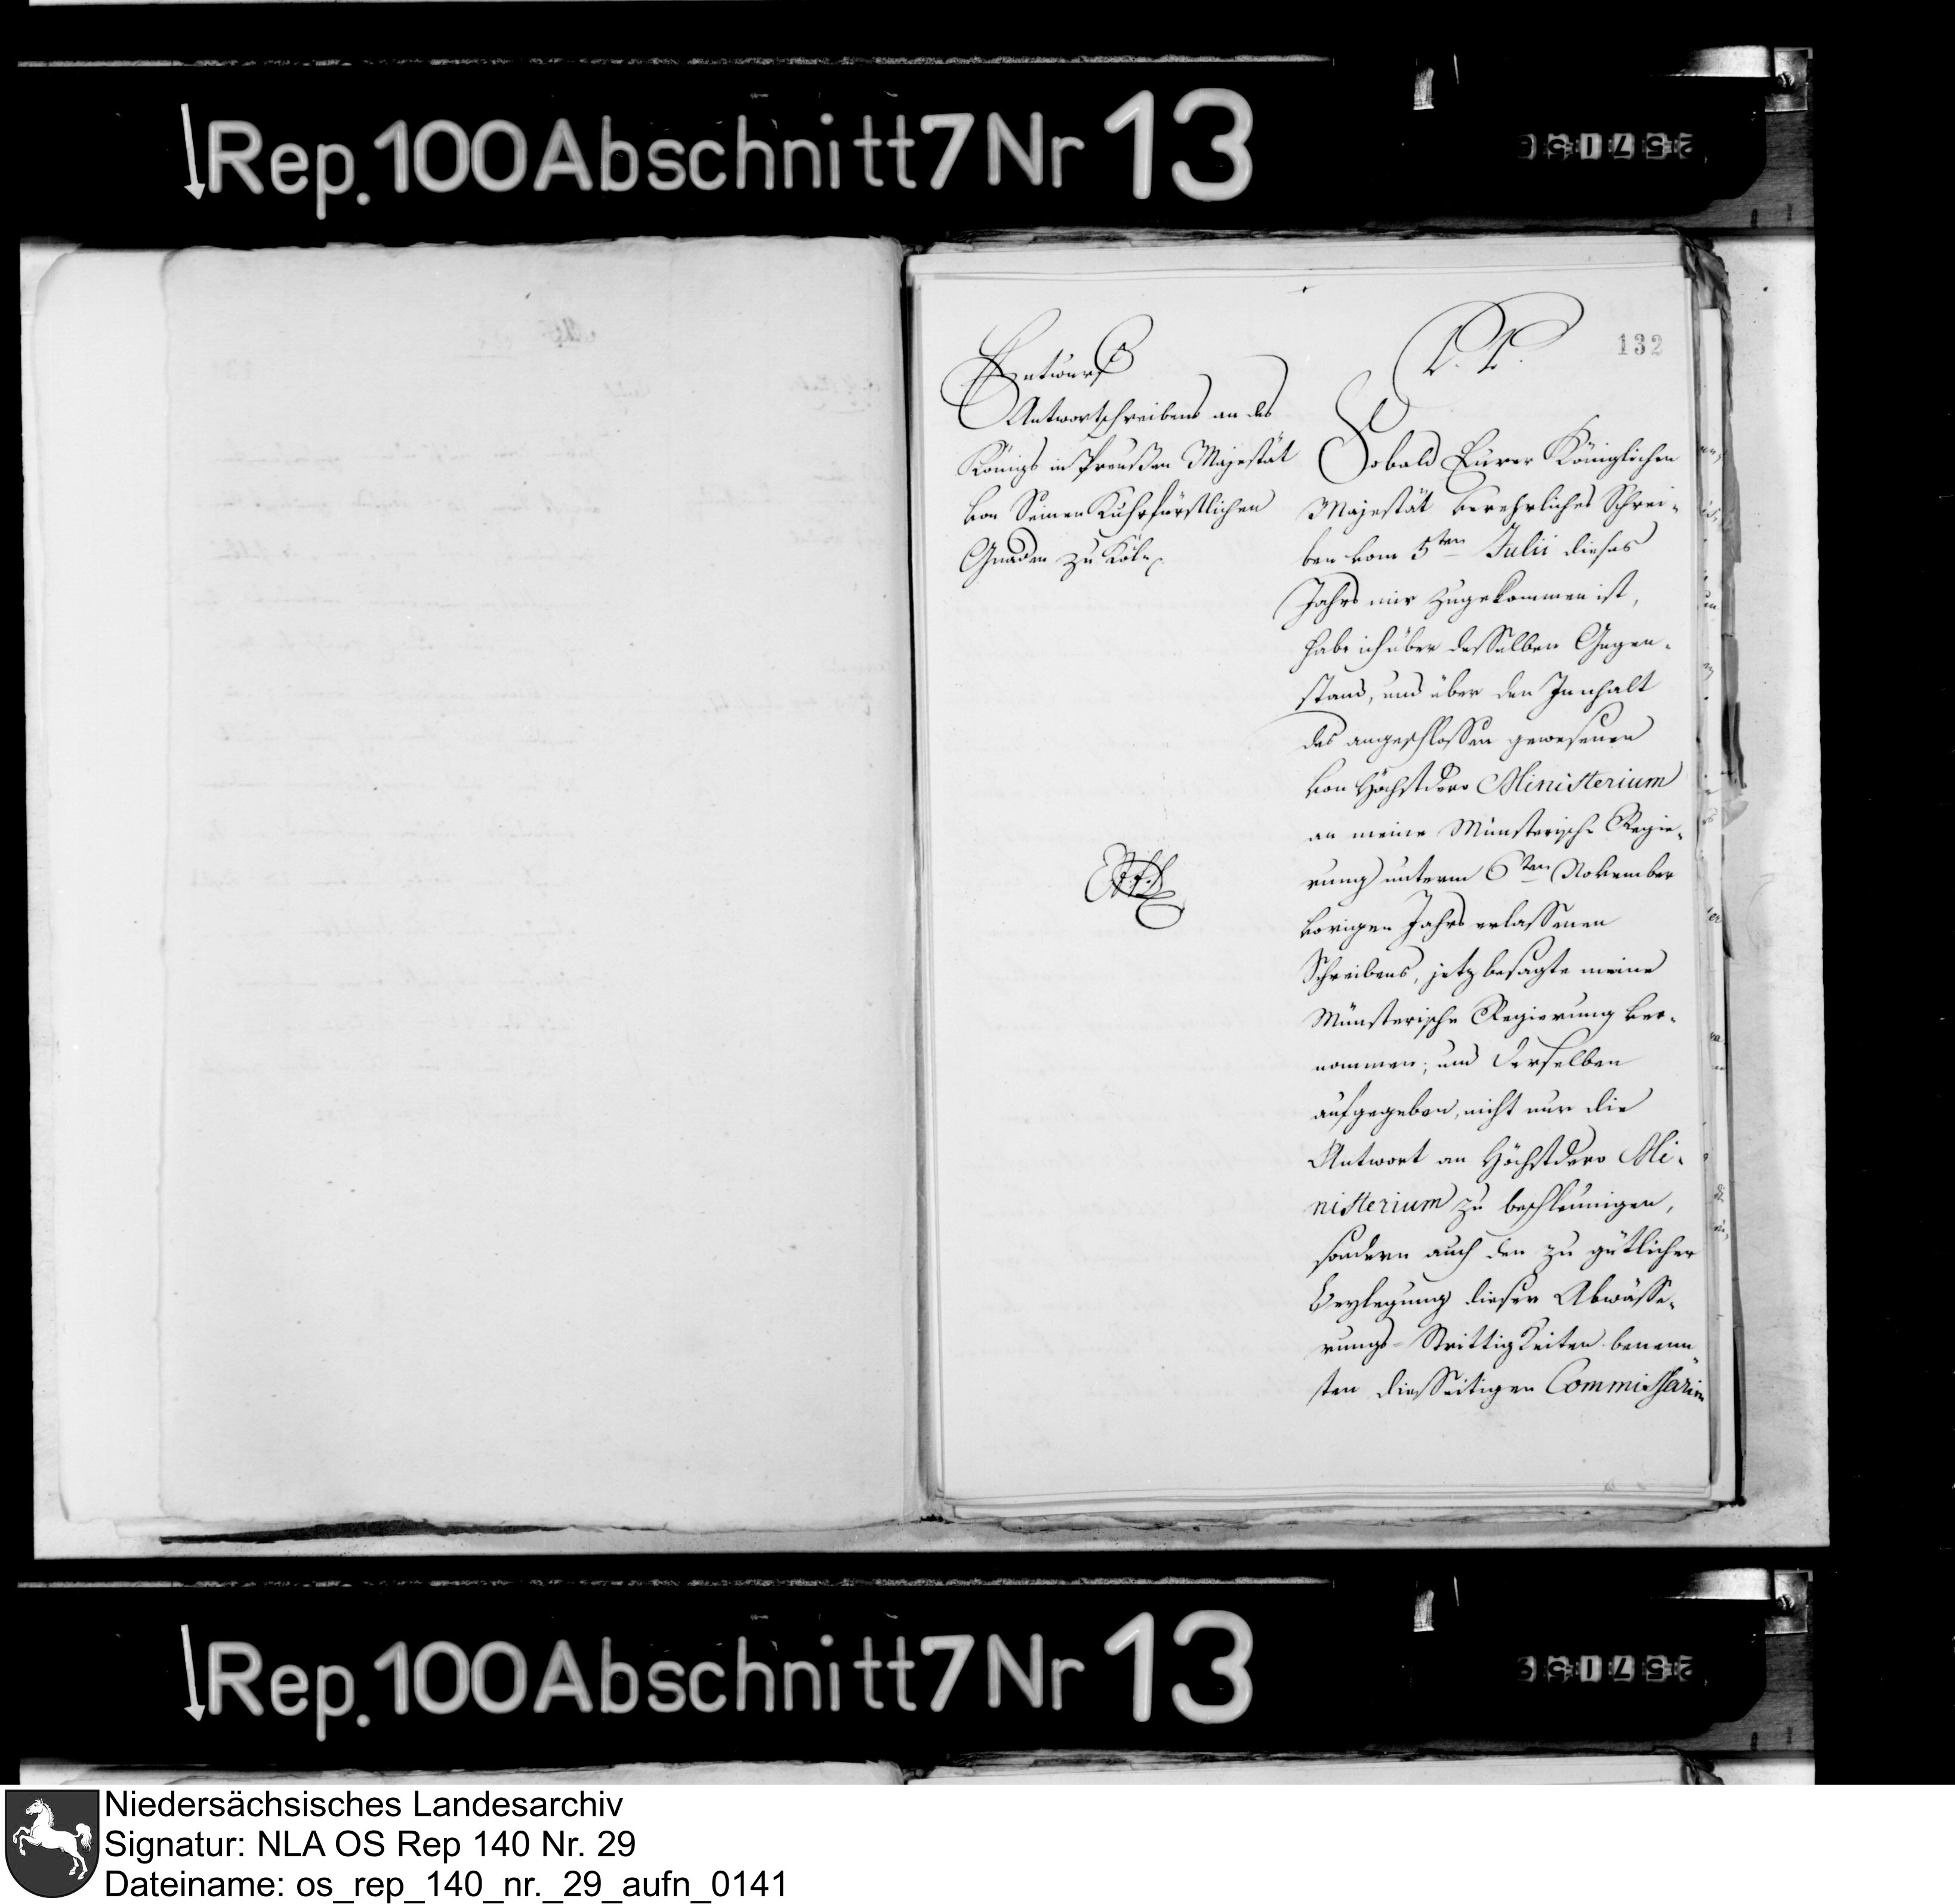 Rep. 100 Abschnitt 7 Nr 13
132
Entwurf
Antwortschreibens an des
Königs in Preußen Majestät
von Seiner Kuhrfürstlichen
Gnaden zu Köln.
P. P.
Sobald Eurer Königlichen
Majestät verehrliches Schrei-
ben vom 5ten Julii dieses
Jahrs mir zugekommen ist,
habe ich über desselben Gegen-
stand, und über den Innhalt
des angeschlossen gewesenen
von Höchstdero Ministerium
an meine Münsterische Regie-
rung unterm 6ten November
vorigen Jahrs erlassenen
Schreibens, jetz besagte meine
Münsterische Regierung ver-
nommen; und derselben
aufgegeben, nicht nur die
Antwort an Höchstdero Mi-
nisterium zu beschleunigen,
sondern auch den zu gütlicher
Beylegung dieser Abwässe-
rungs-Strittigkeiten benenn-
ten diesseitigen Commissarium
Rep. 100 Abschnitt 7 Nr 13
Niedersächsisches Landesarchiv
Signatur: NLA OS Rep 140 Nr. 29
Dateiname: os_rep_140_nr._29_aufn_0141